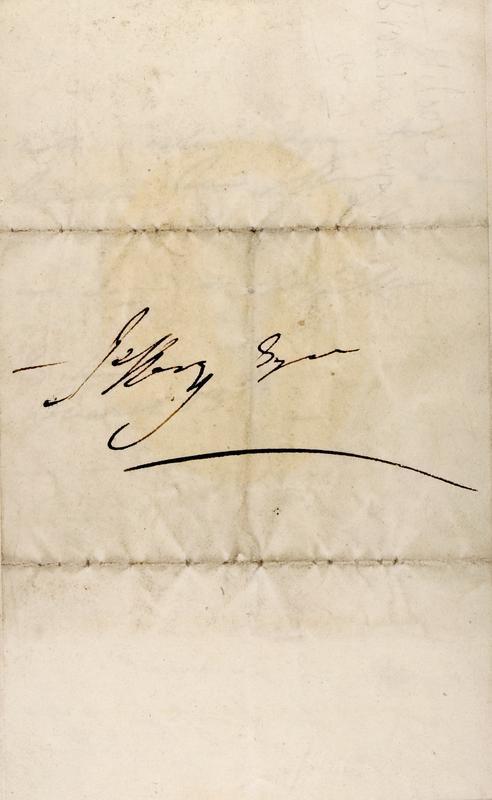 — Jeffery Esqre